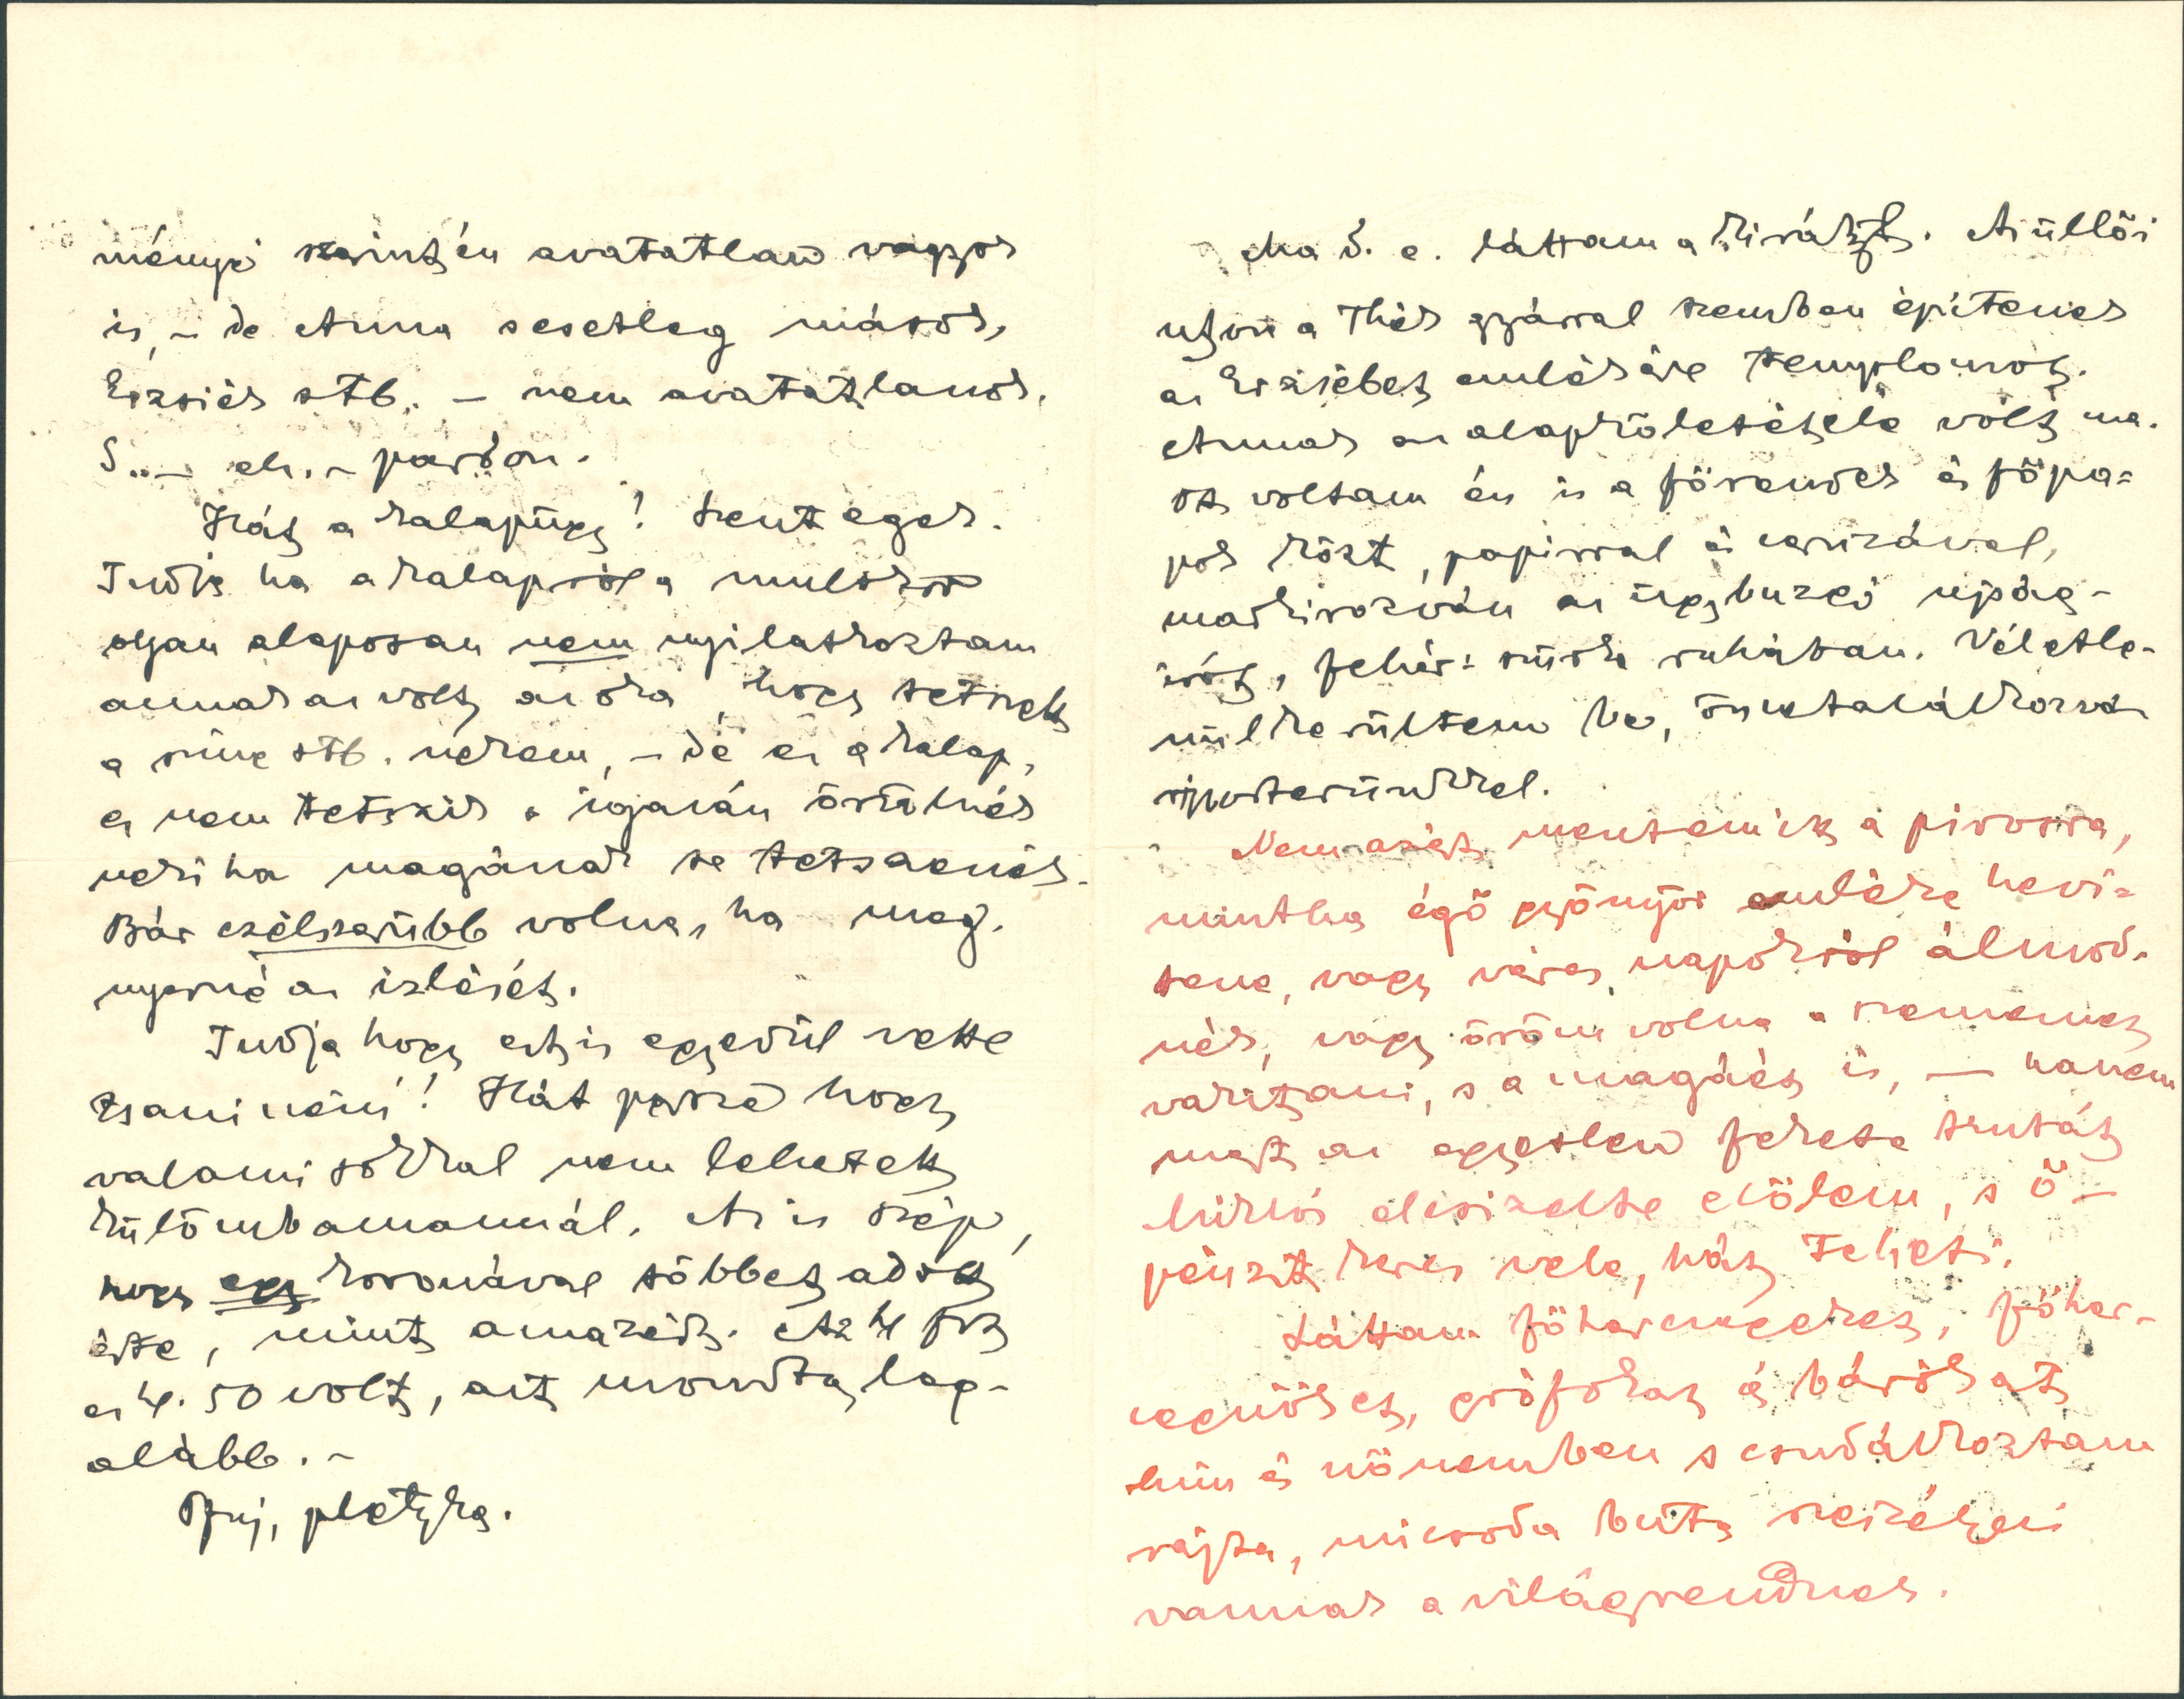 ményi szintén avatatlan vagyok
is, – de Anna esetleg mások,
Erzsiék stb. – nem avatatlanok.
S.. – eh. – pardon.
Hát a kalapügy! Szent egek.
Tudja ha a kalapról a multkor
olyan alaposan nem nyilatkoztam
annak az volt az oka, hogy tetszett
a szine stb. nekem, – de ez a kalap,
ez nem tetszik s igazán örülnék
neki ha magának se tetszenék.
Bár czélszerübb volna, ha meg-
nyerné az izlését.
Tudja hogy ezt is egyedül vette
Zsani néni! Hát persze hogy
valami sokkal nem lehetett
külömb amannál. Az is szép,
hogy egy koronával többet adott
érte, mint amazért. Az 4 frt
ez 4.50 volt, azt mondta leg-
alább. –
Pfuj, pletyka.
Ma d. e. láttam a királyt. Az üllői
uton a Thék gyárral szemben épitenek
az Erzsébet emlékére templomot.
Annak az alapkőletétele volt ma.
Ott voltam én is a főrendek és főpa-
pok közt, papirral és ceruzával,
markirozván az ügybuzgó ujság-
irót, fehér: szürke ruhában. Véletle-
nül kerültem be, összetalálkozva
riporterünkkel.
Nem azért mentem itt a pirosra,
mintha égő gyönyör emléke hevi-
tene, vagy véres napokról álmod-
nék, vagy öröm volna a szememet
vakitani, s a magáét is, — hanem
mert az egyetlen fekete tentát
hirlói elcsizelte előlem, s ő –
pénzit keres vele, hát teheti.
Láttam főherczegeket, főher-
czegnőket, grófokat és bárókat
him és nőnemben s csudálkoztam
rajta, micsoda buta szeszélyei
vannak a világrendnek.